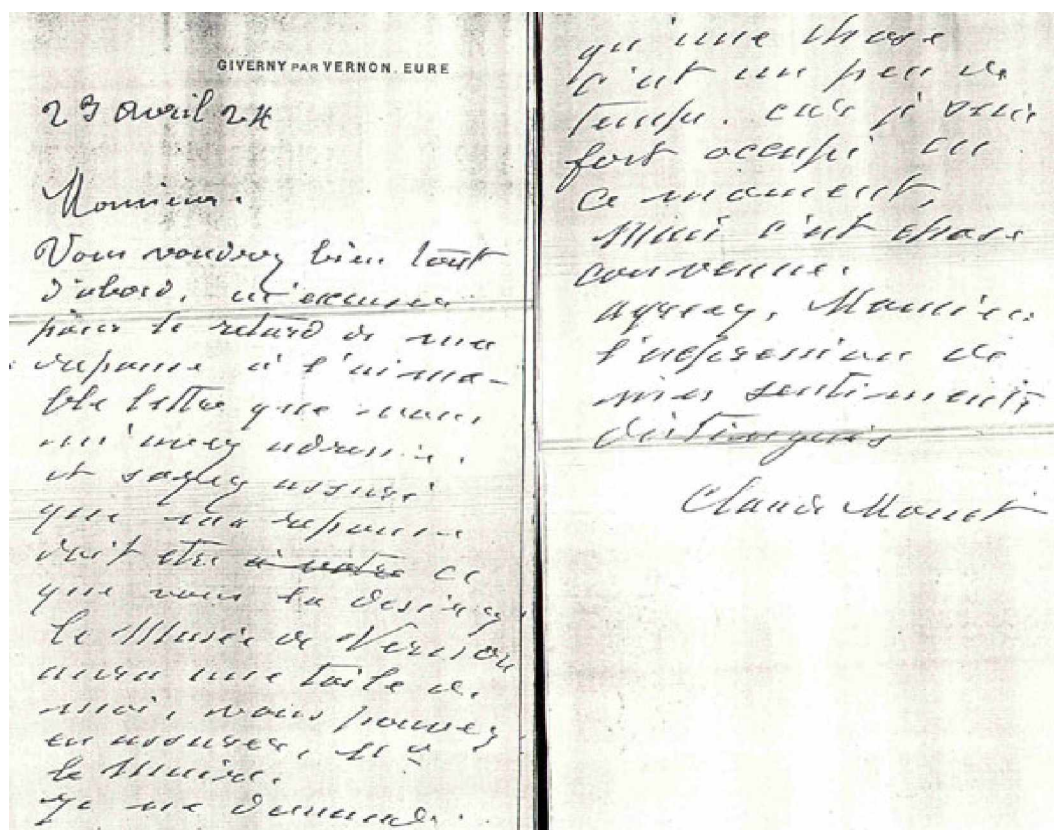 GIVERNY PAR VERNON. EURE
23 avril 24
Monsieur.
Vous voudrez bien tout
d'abord, m'excuser
pour le retard de ma
reponse à l'aima-
ble lettre que vous
m'avez adressée.
et soyez assuré
que ma reponse
doit etre à votre ce
que vous la desirez,
le Musée de Vernon
aura une toile de
moi, vous pouvez
en assurer, Mr
le Maire.
Je ne demande
qu'une chose
c'est un peu de
temps. car je suis
fort occupé en
ce moment,
Mais c'est chose
convenue.
agreez, Monsieur
l'expression de
mes sentiments
distingués
Claude Monet